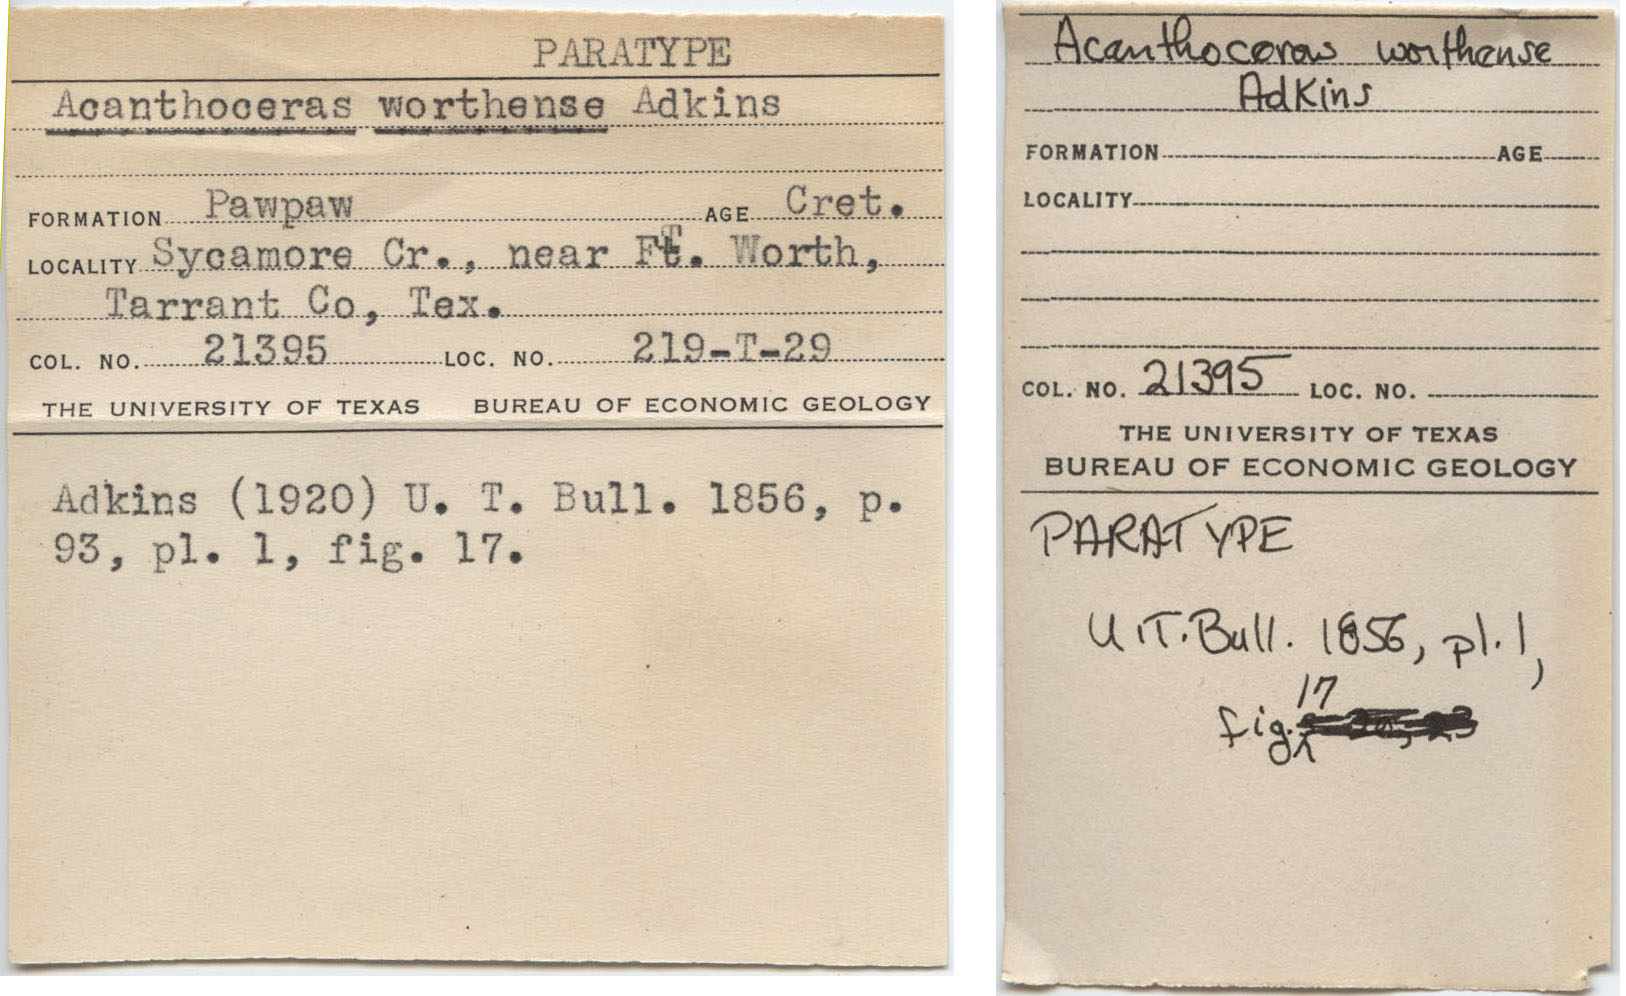 PARATYPE
Acanthoceras worthense Adkins
FORMATION Pawpaw AGE Cret.
LOCALITY Sycamore Cr., near Ft. Worth,
Tarrant Co, Tex.
COL. NO. 21395 LOC. NO. 219-T-29
THE UNIVERSITY OF TEXAS BUREAU OF ECONOMIC GEOLOGY
Adkins (1920) U. T. Bull. 1856, p.
93, pl. 1, fig. 17.
Acanthoceras worthense
Adkins
FORMATION AGE
LOCALITY
COL. NO. 21395 LOC. NO.
THE UNIVERSITY OF TEXAS
BUREAU OF ECONOMIC GEOLOGY
PARATYPE
U.T. Bull. 1856, pl. 1,
fig. 17